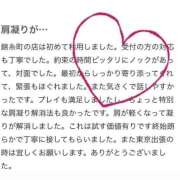 肩凝りが…
錦糸町の店は初めて利用しました。受付の方の対応
も丁寧でした。約束の時間ピッタリにノックがあっ
て、対面でした。最初からしっかり寄り添ってくれ
て、緊張もほぐれました。また気さくで話しやすか
ったです。プレイも満足しましたし、ちょっと特別
な肩凝り解消法も良かったです。肩が軽くなって凝
りが解消しました。これは試す価値有りです終始朗
らかで丁寧に接してもらいました。また東京出張の
時は宜しくお願いします。ありがとうございまし
た。